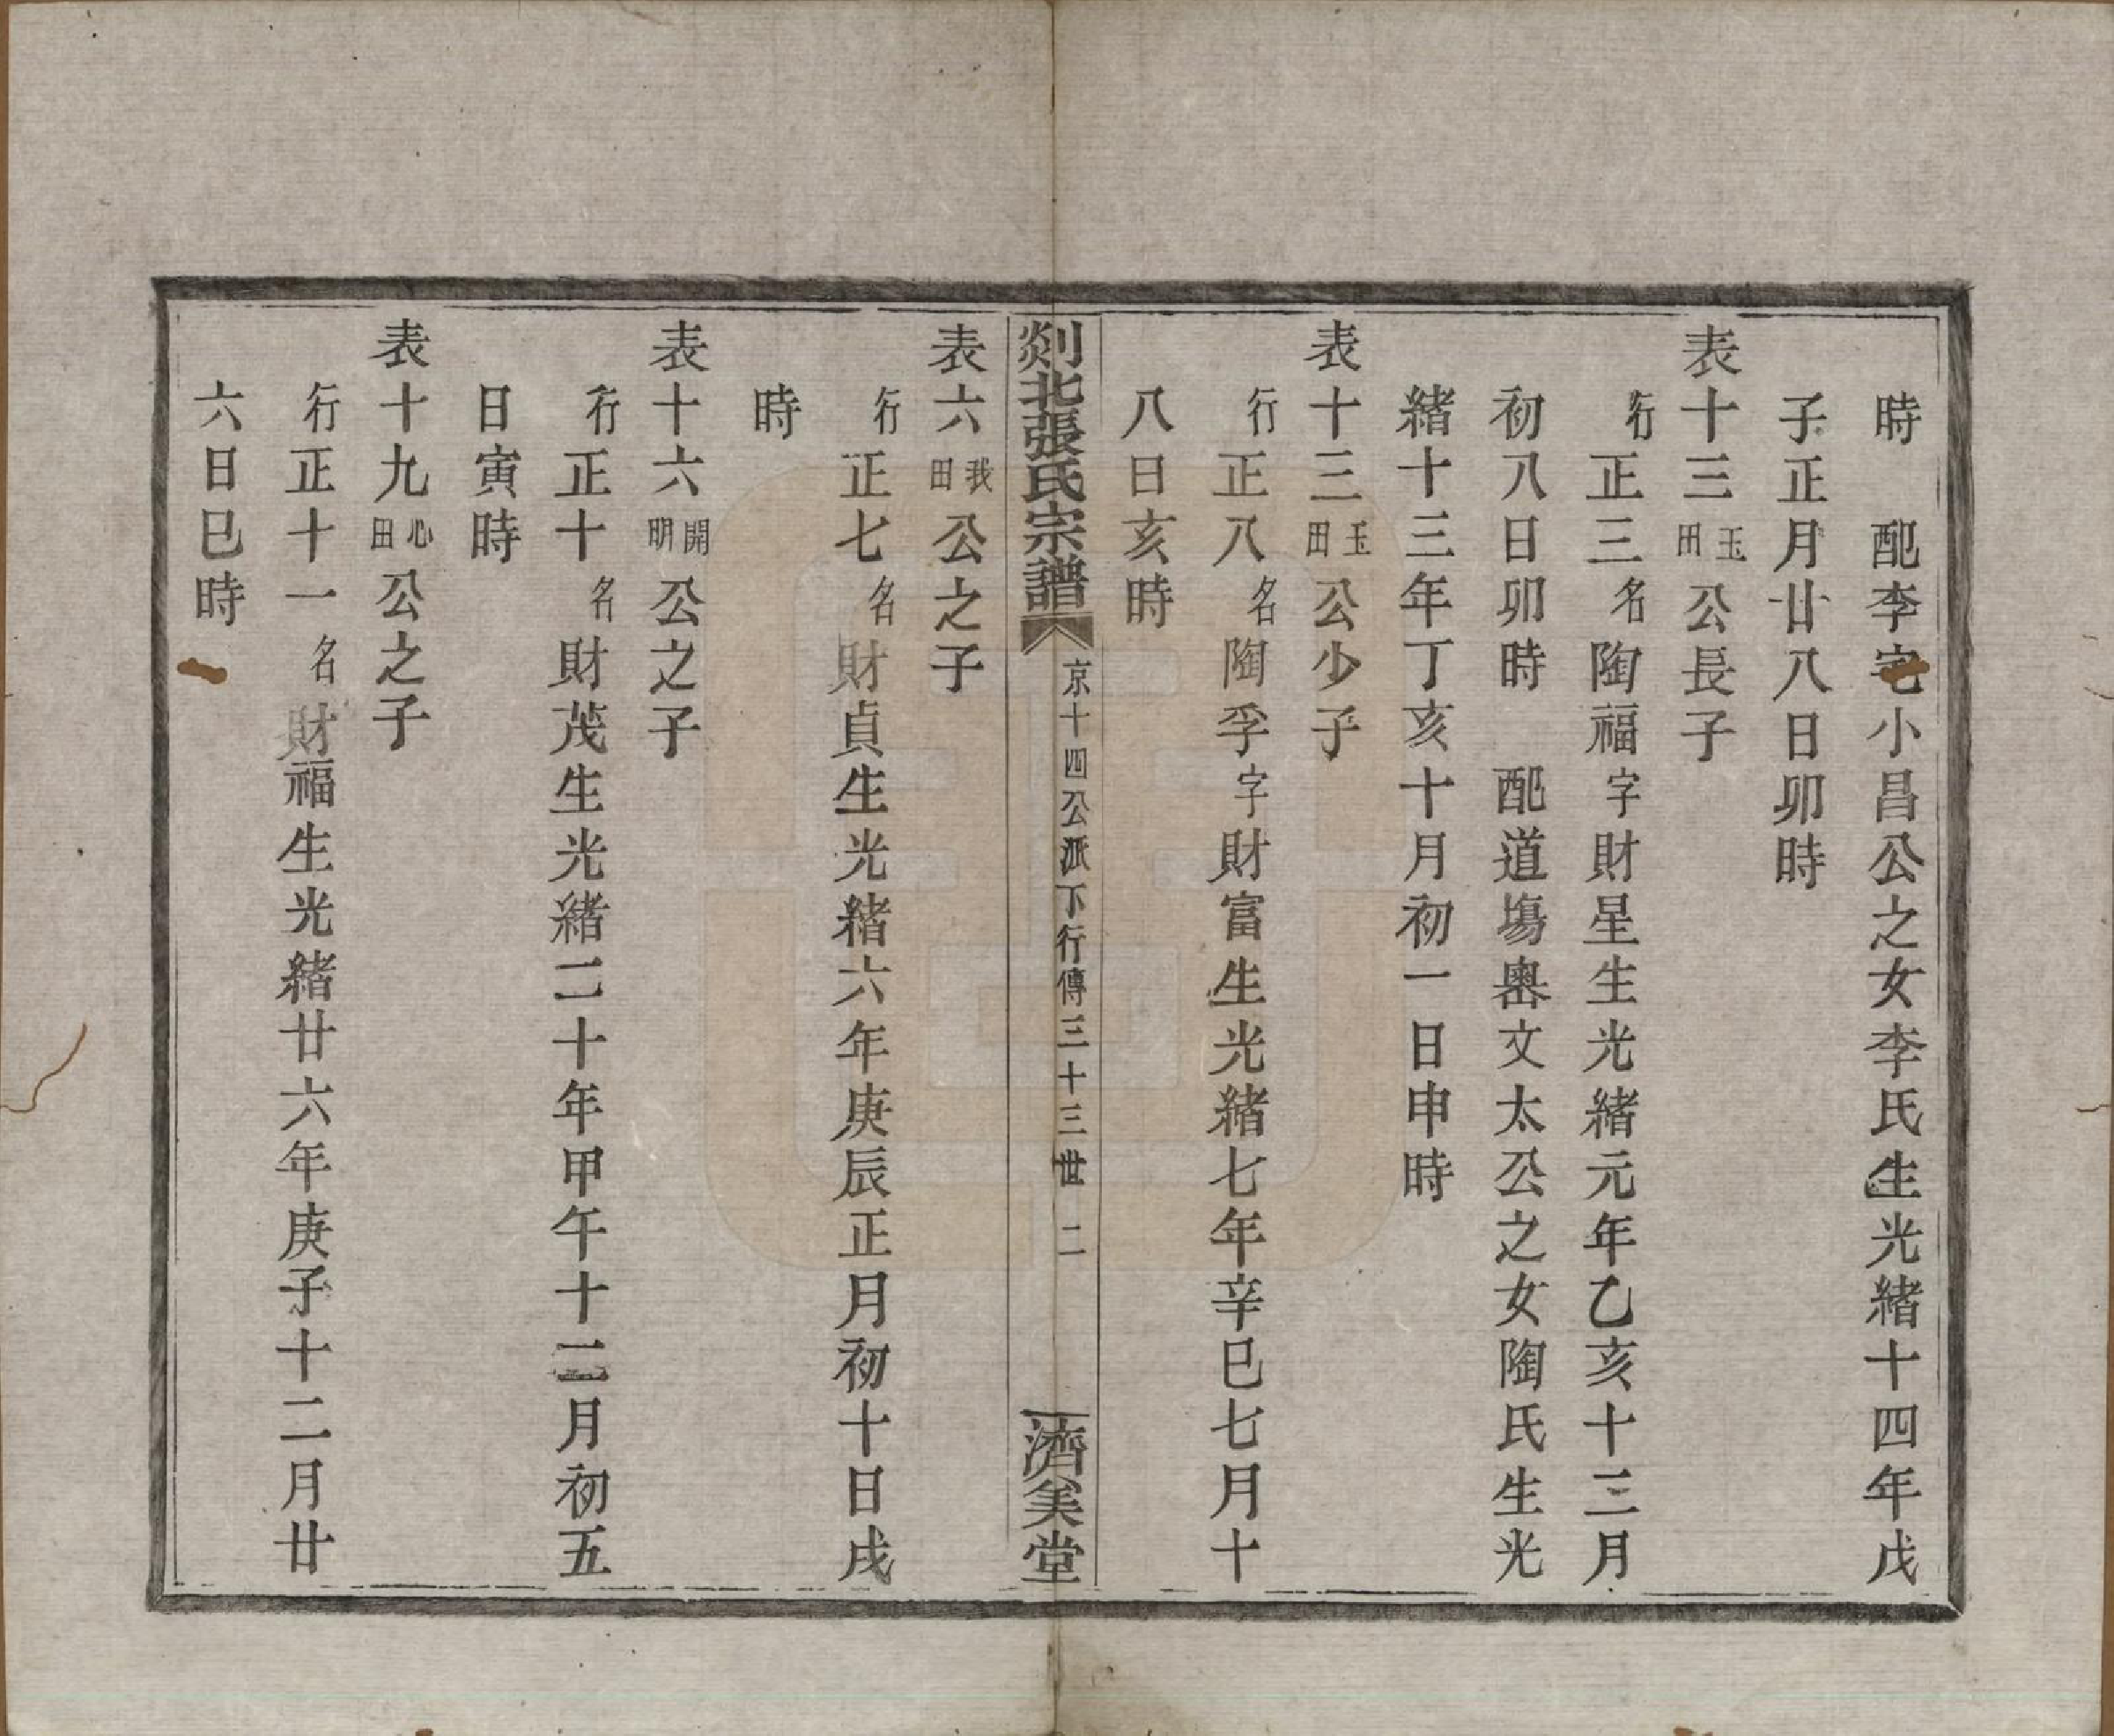 時　配李宅小昌公之女李氏生光緒十四年戊
子正月廿八日卯時
表十三玉田公長子
行正三名陶福字財星生光緒元年乙亥十二月
初八日卯時　配道塲嶴文太公之女陶氏生光
緒十三年丁亥十月初一日申時
表十三玉田公少子
行正八名陶孚字財富生光緒七年辛巳七月十
八日亥時
剡北張氏宗譜　京十四公派下行傳三十三世　二　濟美堂
表六我田公之子
行正七名財貞生光緒六年庚辰正月初十日戌
時
表十六開明公之子
行正十名財茂生光緒二十年甲午十二月初五
日寅時
表十九心田公之子
行正十一名財福生光緒廿六年庚子十二月廿
六日巳時